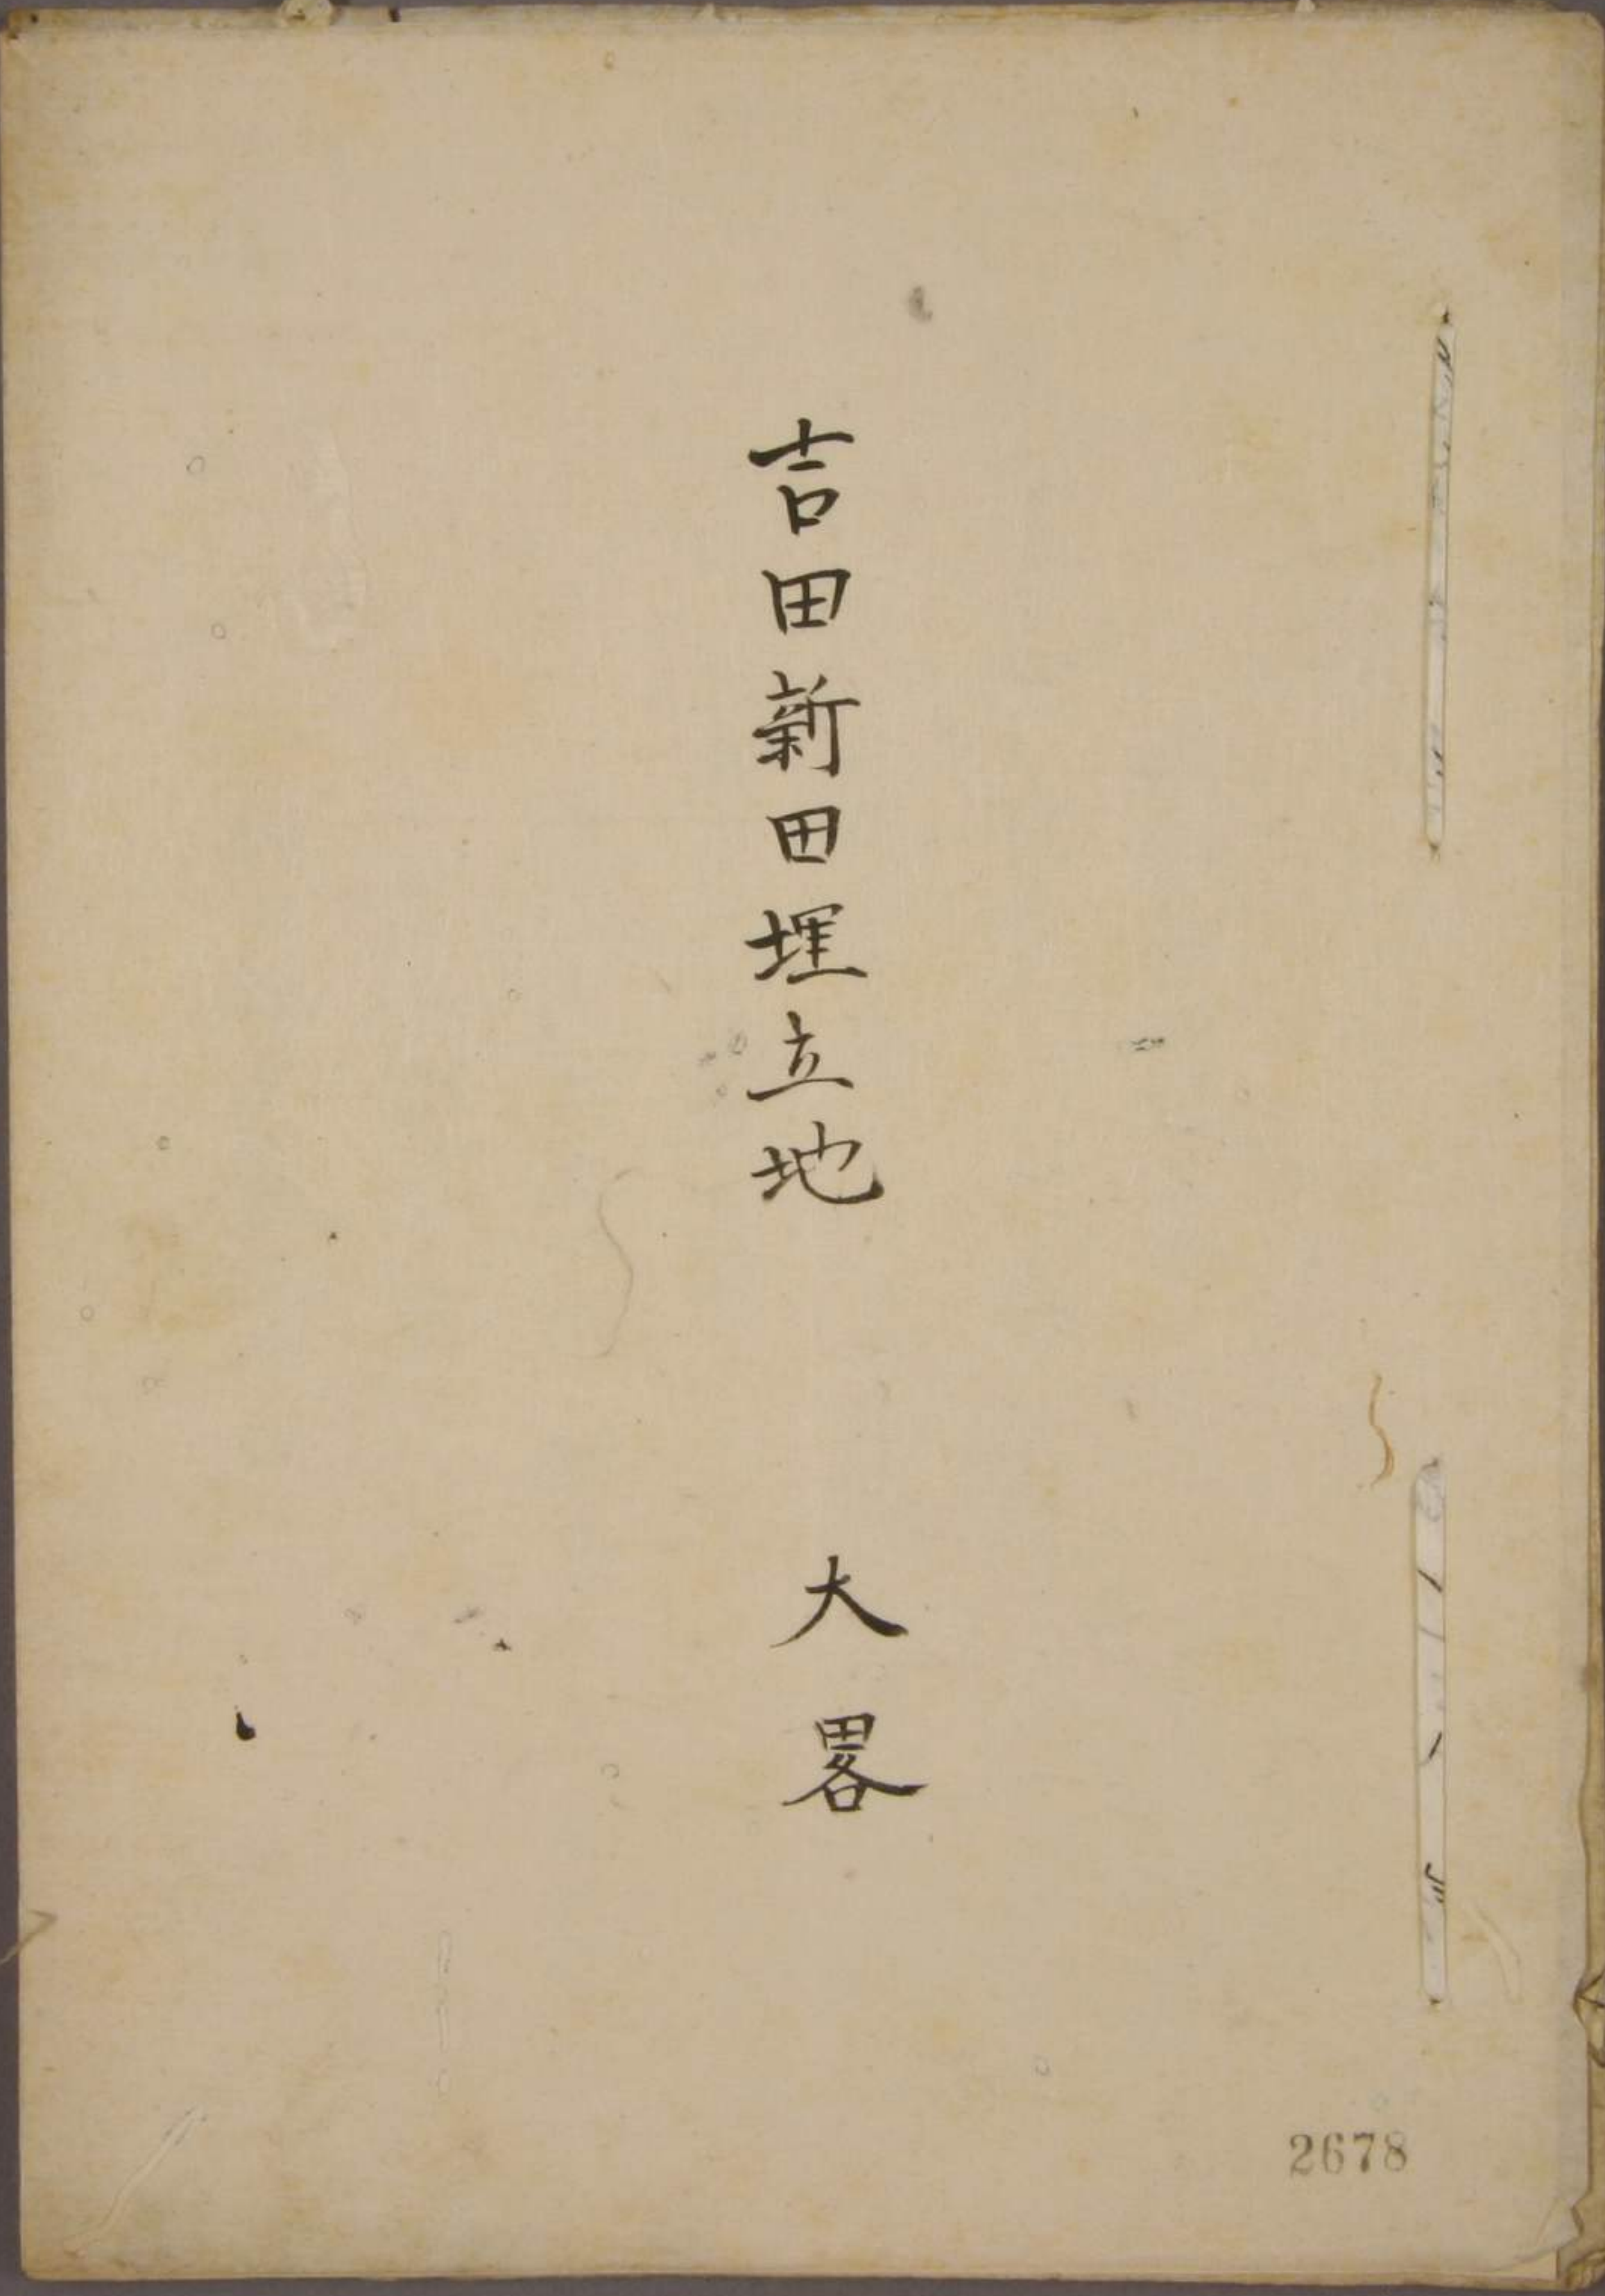 吉田新田埋立地 大畧
2678